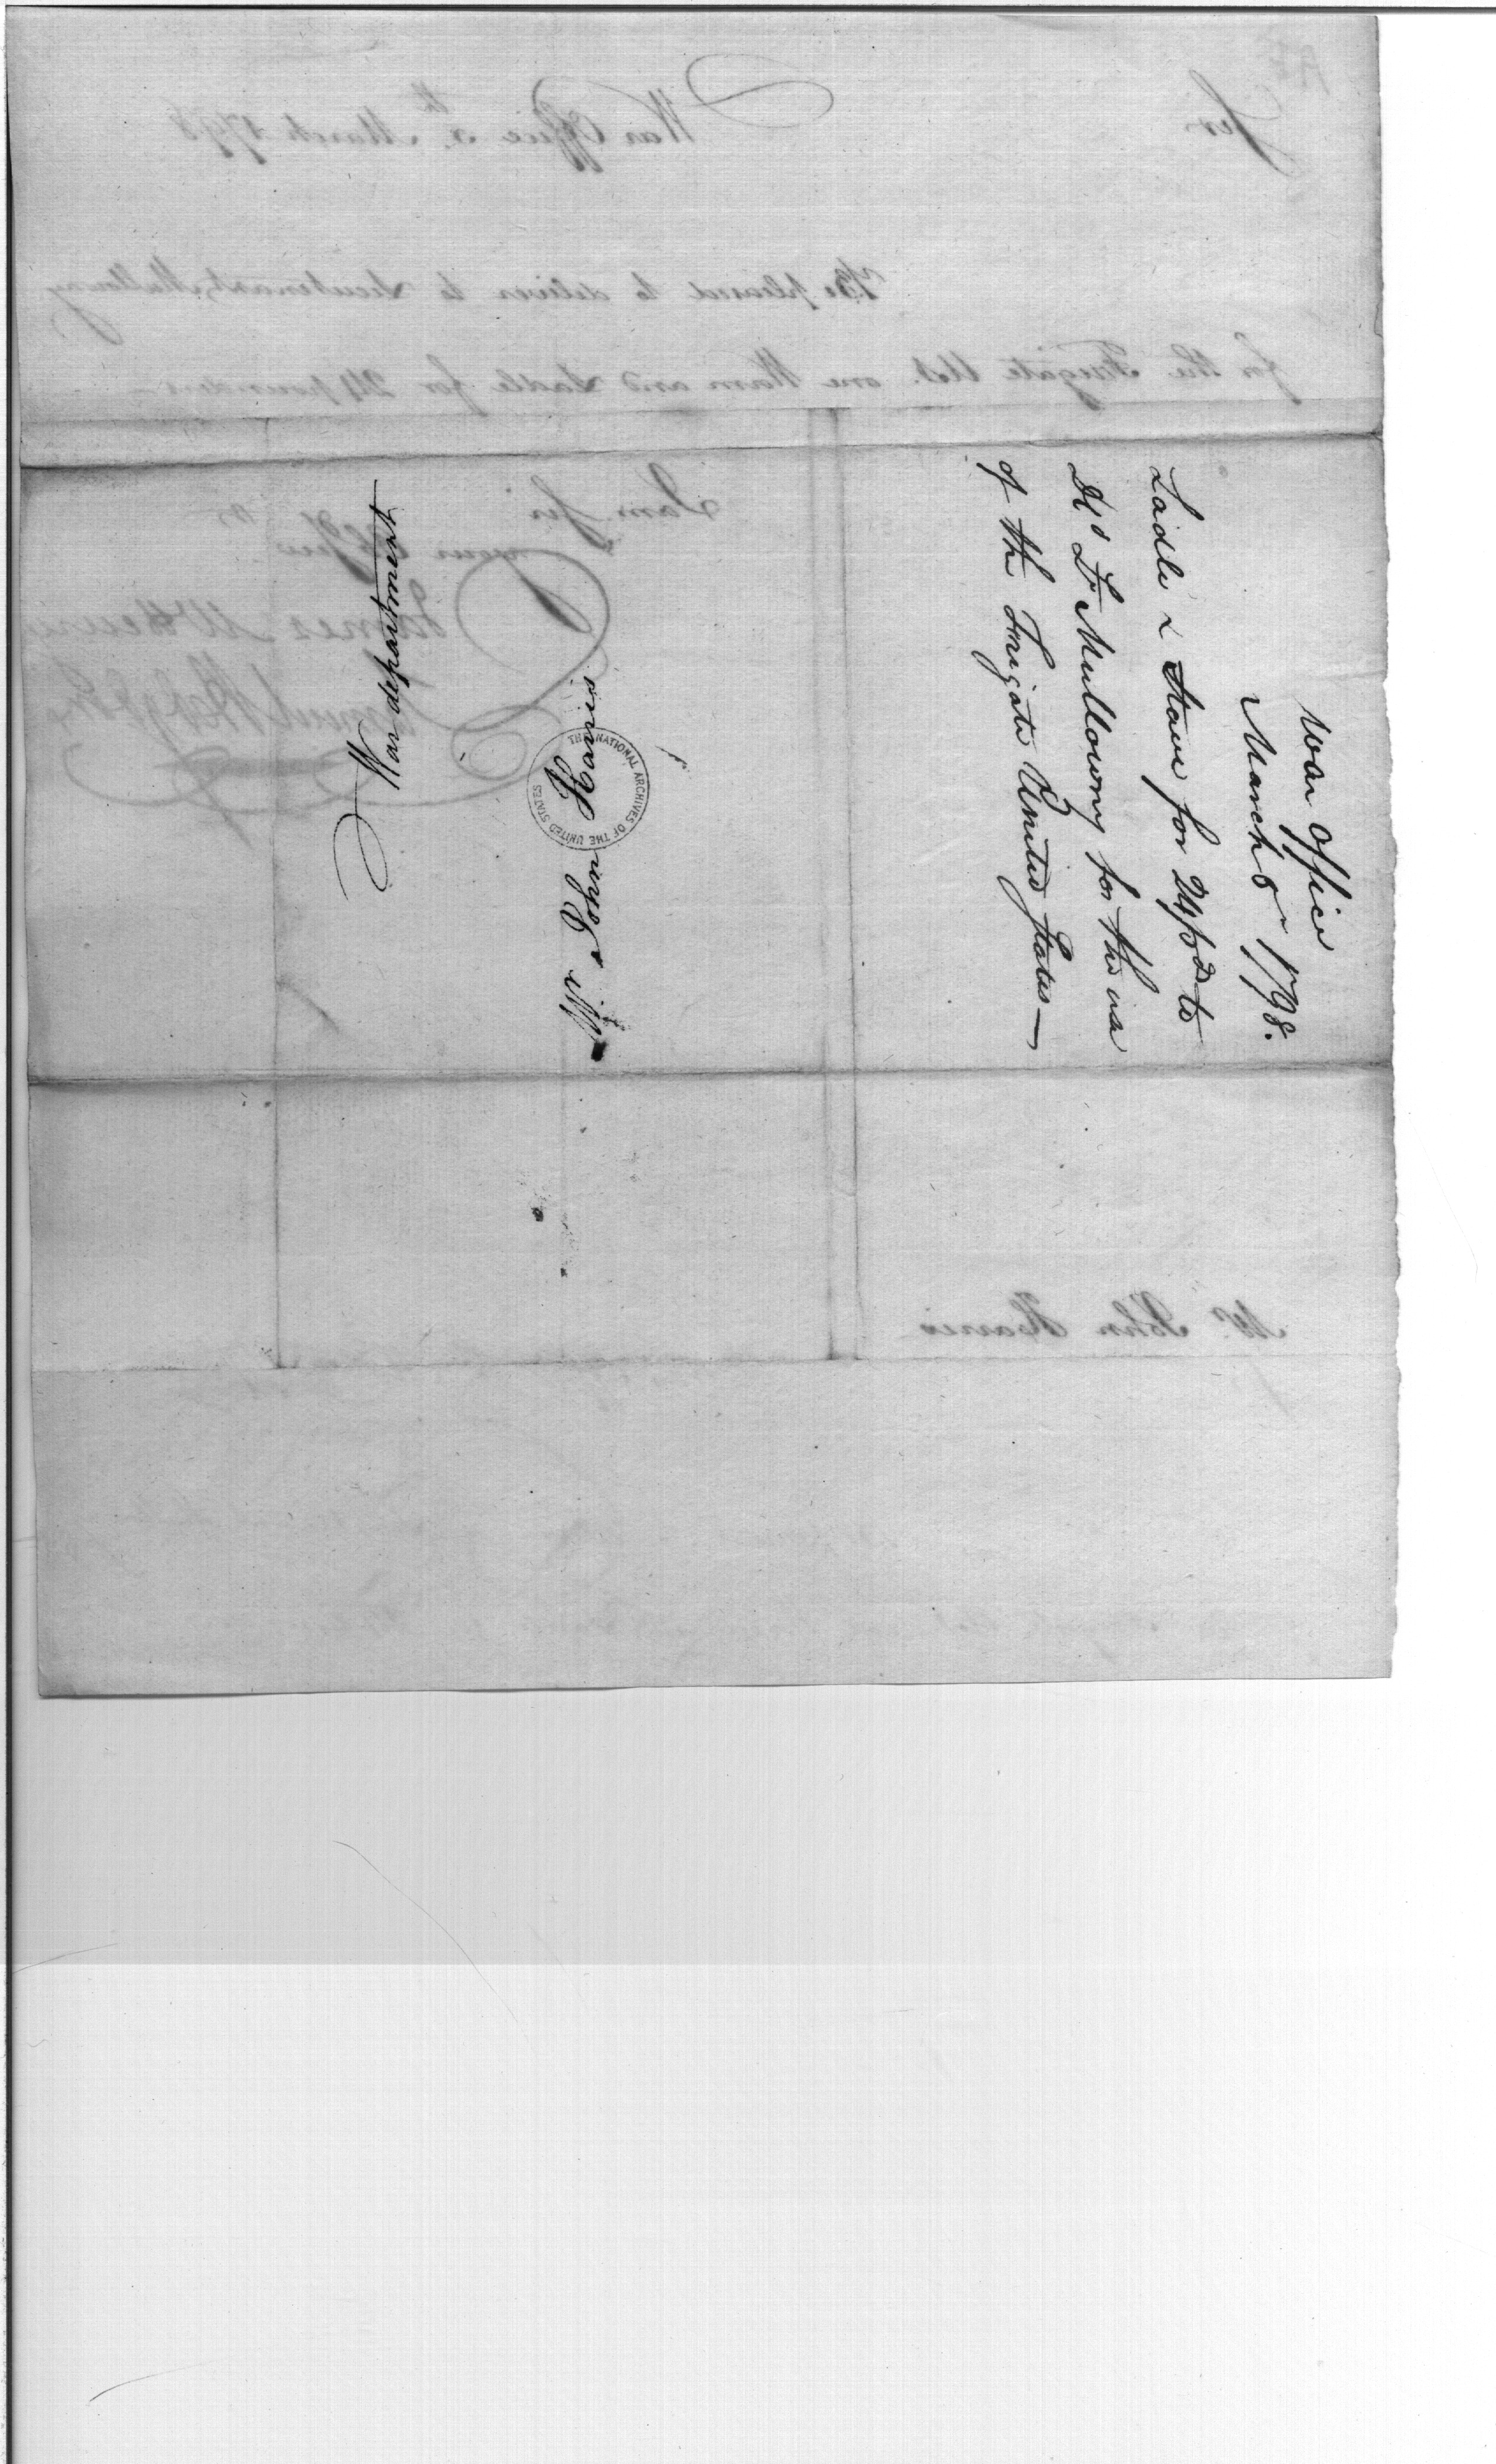 War Office
March 5 1798.
Ladle & Stave for 24 pds to
Lt Mullowny for the use
of the Frigate United States—
Mr. John Harris
War department
THE NATIONAL ARCHIVES OF THE UNITED STATES
Sir
War Office 5th. March 1798
Be pleased to deliver to Lieutenant Mullowny
for the Frigate U.S. one Worm and Ladle for 24 pounders—
I am Sir
your
James McHenry
Mr. John Harris